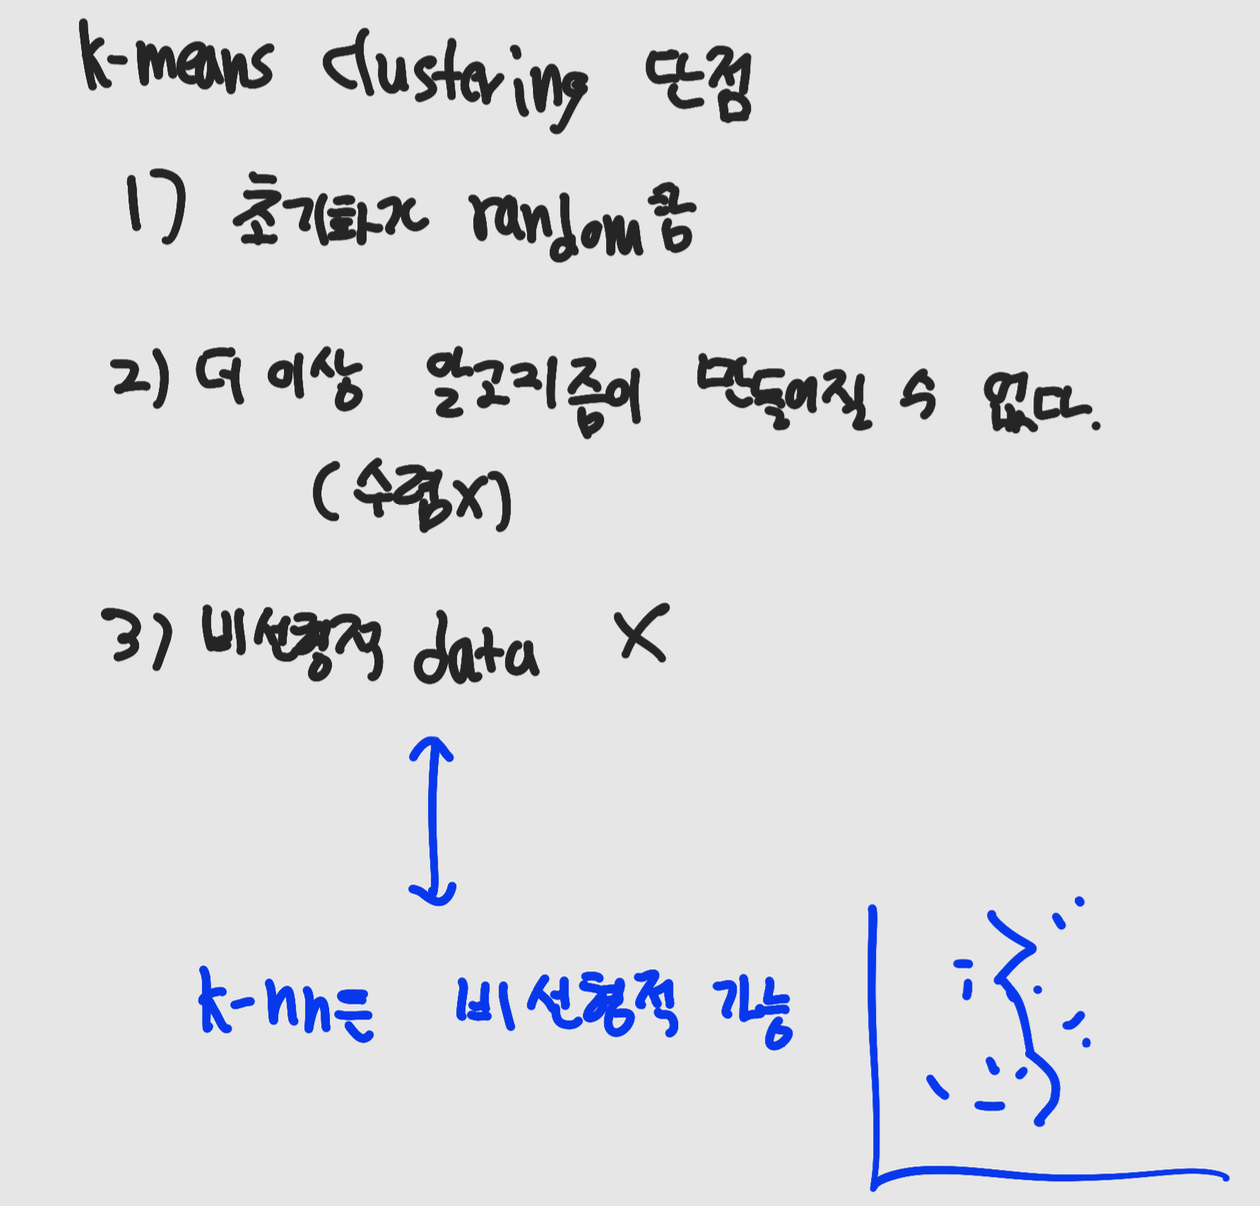 k-means clustering 단점
1) 초기화 random
2) 더 이상 알고리즘이 만들어질 수 없다.
(수렴X)
3) 비선형적 data X
k-nn는 비선형적 가능